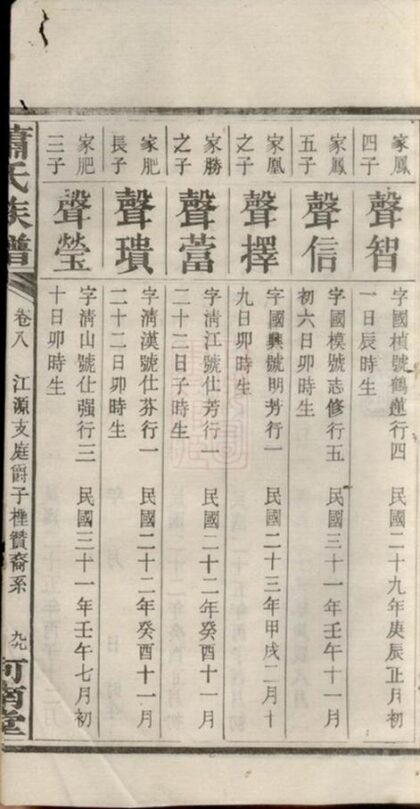 家鳳
四子
聲智
字國楨號鶴蓮行四 民國二十九年庚辰正月初
一日辰時生
家鳳
五子
聲信
字國模號志修行五 民國三十一年壬午十一月
初六日卯時生
家凰
之子
聲擇
字國興號明芳行一 民國二十三年甲戌二月十
九日卯時生
家勝
之子
聲蓸
字清江號仕芳行一 民國二十二年癸酉十一月
二十二日子時生
家肥
長子
聲璝
字清漢號仕芬行一 民國二十二年癸酉十一月
二十二日卯時生
家肥
三子
聲瑩
字清山號仕强行三 民國三十一年壬午七月初
十日卯時生
蕭氏族譜
卷八 江源支庭爵子樁贊裔系 九九
河南堂